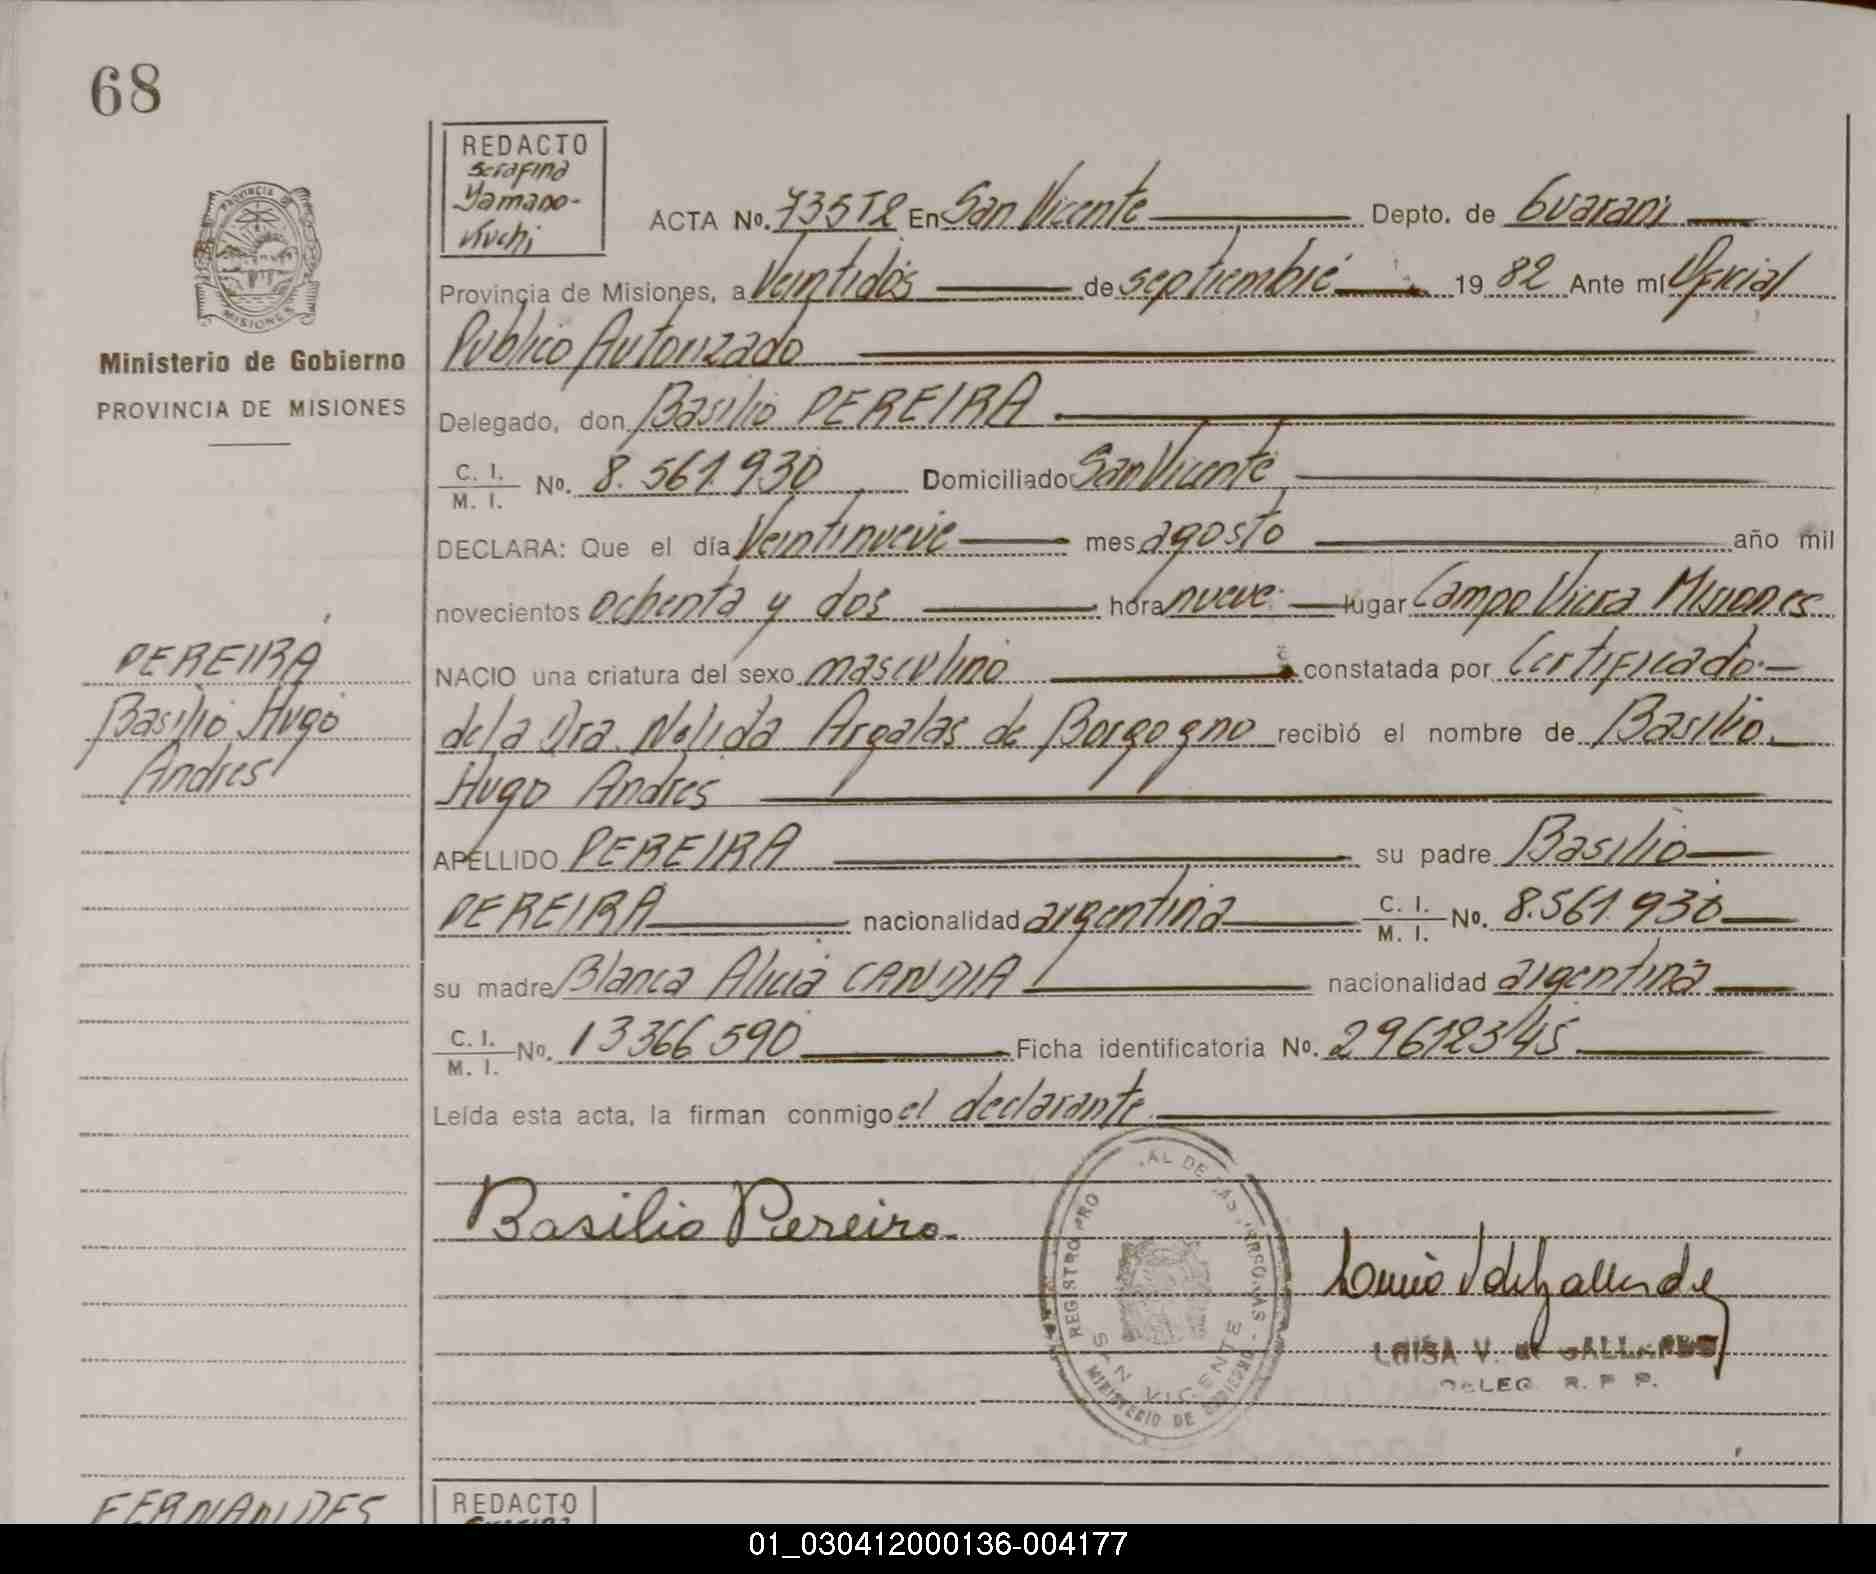 68
REDACTO
Serafina
Yamano-
kuchi
PROVINCIA
MISIONES
Ministerio de Gobierno
PROVINCIA DE MISIONES
ACTA No. 735T2 En San Vicente Depto. de Guarani
Provincia de Misiones, a Veintidós de septiembre 19 82 Ante mí Oficial
Publico Autorizado
Delegado, don Basilio PEREIRA
C. I. M. I. No. 8.561.930 Domiciliado San Vicente
DECLARA: Que el día Veintinueve mes agosto año mil
novecientos ochenta y dos hora nueve lugar Campo Viera Misiones
NACIO una criatura del sexo masculino constatada por Certificado
de la Dra. Nelida Argalas de Borgogno recibió el nombre de Basilio
Hugo Andres
APELLIDO PEREIRA su padre Basilio
PEREIRA nacionalidad argentina C. I. M. I. No. 8.561.930
su madre Blanca Alicia CANDIA nacionalidad argentina
C. I. M. I. No. 13366590 Ficha identificatoria No. 29612345
Leída esta acta, la firman conmigo el declarante
PEREIRA
Basilio Hugo
Andres
Basilio Pereira
REGISTRO PRO AL DE LAS PERSONAS - MINISTERIO DE GOBIERNO
SAN VICENTE
LUISA V. de GALLARDO
DELEG. R. P. P.
FERNANDES
REDACTO
01_030412000136-004177